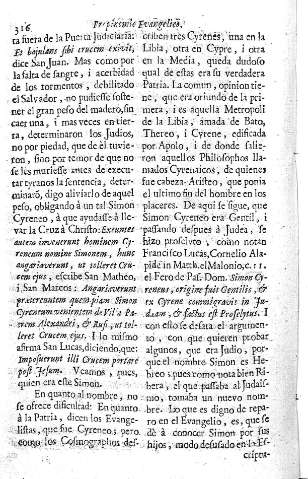 316
Propheticum Evangelico.
ra fuera de la Puerta Judiciaria:
Et bajulans sibi crucem exivit,
dice San Juan. Mas como por
la falta de sangre, i acerbidad
de los tormentos, debilitado
el Salvador, no pudiesse soste-
ner el gran peso del madero, sin
caer una, i mas veces en tier-
ra, determinaron los Judios,
no por piedad, que de él tuvie-
ron, sino por temor de que no
se les muriesse antes de execu-
tar tyranos la sentencia, deter-
minaron, digo aliviarlo de aquel
peso, obligando à un tal Simon
Cyreneo, à que ayudasse à lle-
var la Cruz à Christo: Exeuntes
autem invenerunt hominem Cy-
reneum nomine Simonem, hunc
angariaverunt, ut tolleret Cru-
cem ejus, escribe San Matheo,
i San Marcos: Angariaverunt
prætereuntem quempiam Simon
Cyreneum venientem de Villa Pa-
trem Alexandri, & Rufi, ut tolle-
ret Crucem ejus. I lo mismo
afirma San Lucas, diciendo, que:
Imposuerunt illi Crucem portare
post Jesum. Veamos, pues,
quien era este Simon.
En quanto al nombre, no
se ofrece dificultad: En quanto
à la Patria, dicen los Evange-
listas, que fue Cyreneo; pero
como los Cosmographos des-
criben tres Cyrenes, una en la
Libia, otra en Cypre, i otra
en la Media, queda dudoso
qual de estas era su verdadera
Patria. La comun, opinion tie-
ne, que era oriundo de la pri-
mera, i es aquella Metropoli
de la Libia, amada de Bato,
Thereo, i Cyrene, edificada
por Apolo, i de donde salie-
ron aquellos Philosophos lla-
mados Cyrenaicos, de quienes
fue cabeza Aristeo, que ponia
el ultimo fin del hombre en los
placeres. De aqui se sigue, que
Simon Cyreneo era Gentil, i
passando despues à Judea, se
hizo proselyto, como notan
Francisco Lucas, Cornelio Ala-
pide in Matth. el Malonio, c. 12.
el Pero de Pas. Dom. Simon Cy-
reneus, origine fuit Gentilis, &
ex Cyrene commigravit in Ju-
dæam, & factus est Proselytus. I
con esto se desata el argumen-
to, con que quieren probar
algunos, que era Judio, por-
que el nombre Simon es He-
breo; pues como nota bien Ri-
bera, el que passaba al Judais-
mo, tomaba un nuevo nom-
bre. Lo que es digno de repa-
ro en el Evangelio, es, que se
dé à conocer Simon por sus
hijos, modo desusado en la Es-
critura